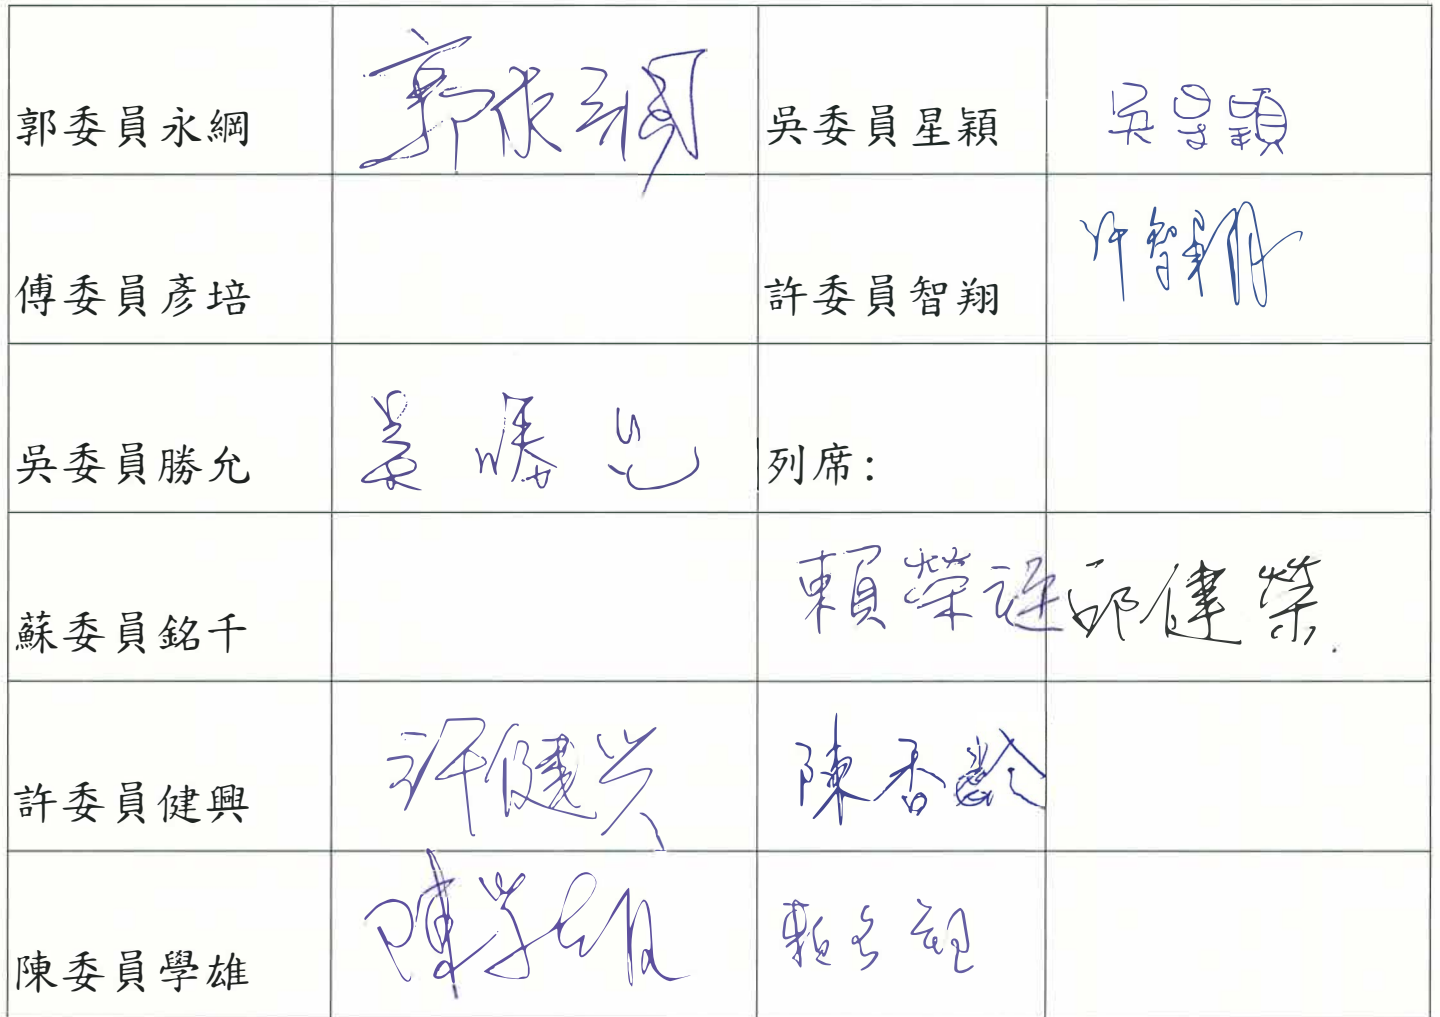 郭委員永綱 郭永綱 吳委員星穎 吳星穎
傅委員彥培 許委員智翔 許智翔
吳委員勝允 吳勝允 列席：
蘇委員銘千 賴榮 邱健榮
許委員健興 許健興 陳香齡
陳委員學雄 陳學雄